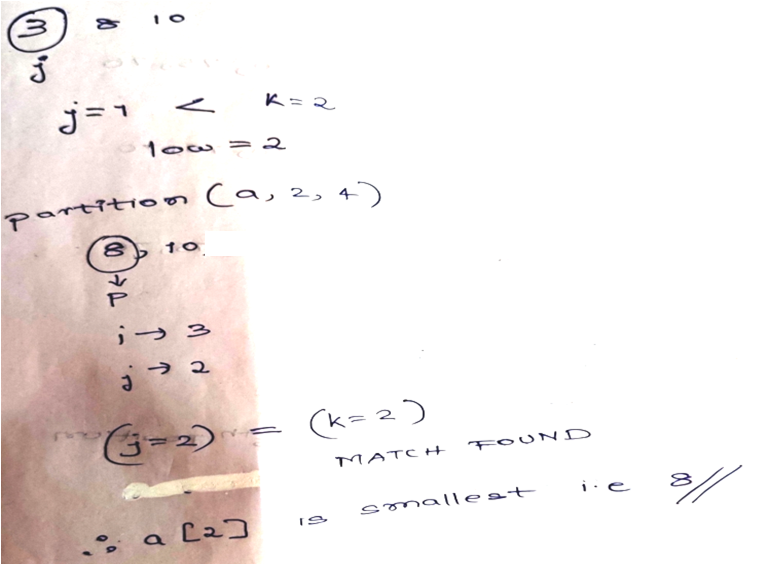 3 8 10
j
j=1 < k=2
low = 2
Partition (a, 2, 4)
8, 10
↓
P
i → 3
j → 2
(j=2) = (k=2)
MATCH FOUND
∴ a[2] is smallest i.e 8//